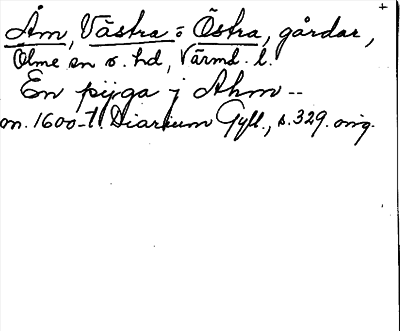 Åm, Västra o Östra, gårdar,
Ölme sn o. hd, Värml. l.
En pijga j Ahm --
m. 1600-t. Diarium Gyll., s. 329. orig.